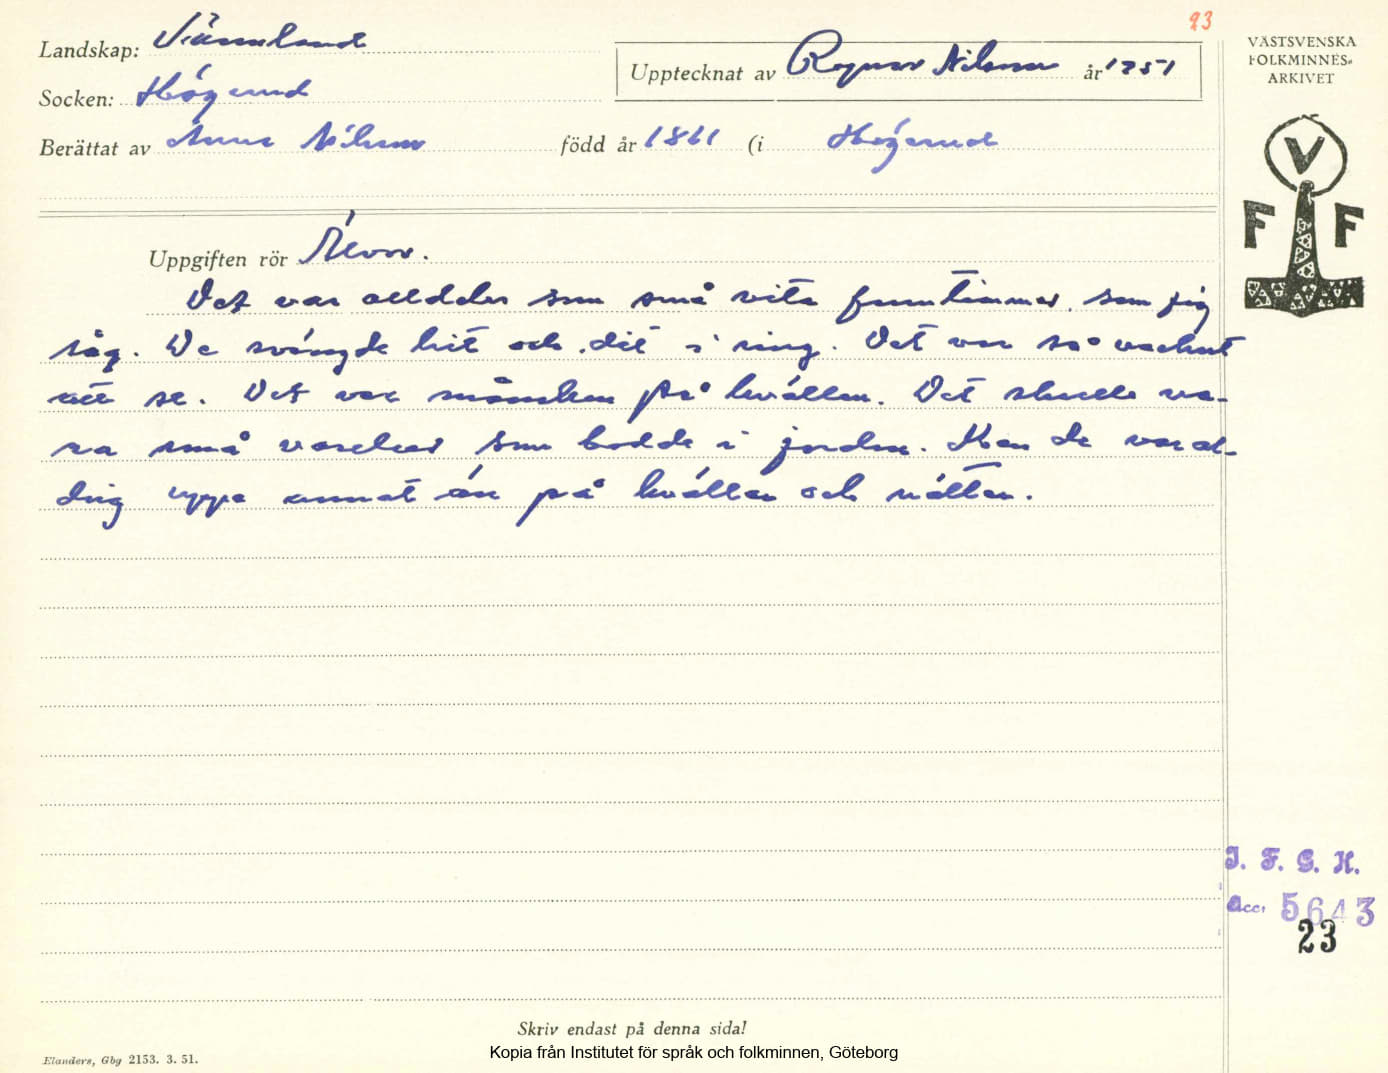 23
Landskap: Värmland
Socken: Högerud
Upptecknat av Ragnar Nilsson år 1951
Berättat av Anna Nilsson född år 1861 (i Högerud
VÄSTSVENSKA
FOLKMINNES-
ARKIVET
V
F F
Uppgiften rör Älvor.
Det var alldeles som små vita fruntimmer, som jig
såg. De svängde hit och dit i ring. Det var så vackert
att se. Det var månsken på kvällen. Det skulle va-
ra små varelser som bodde i jorden. Men de var al-
drig uppe annat än på kvällen och natten.
I. F. G. H.
Acc. 5643
23
Skriv endast på denna sida!
Elanders, Gbg 2153. 3. 51.
Kopia från Institutet för språk och folkminnen, Göteborg